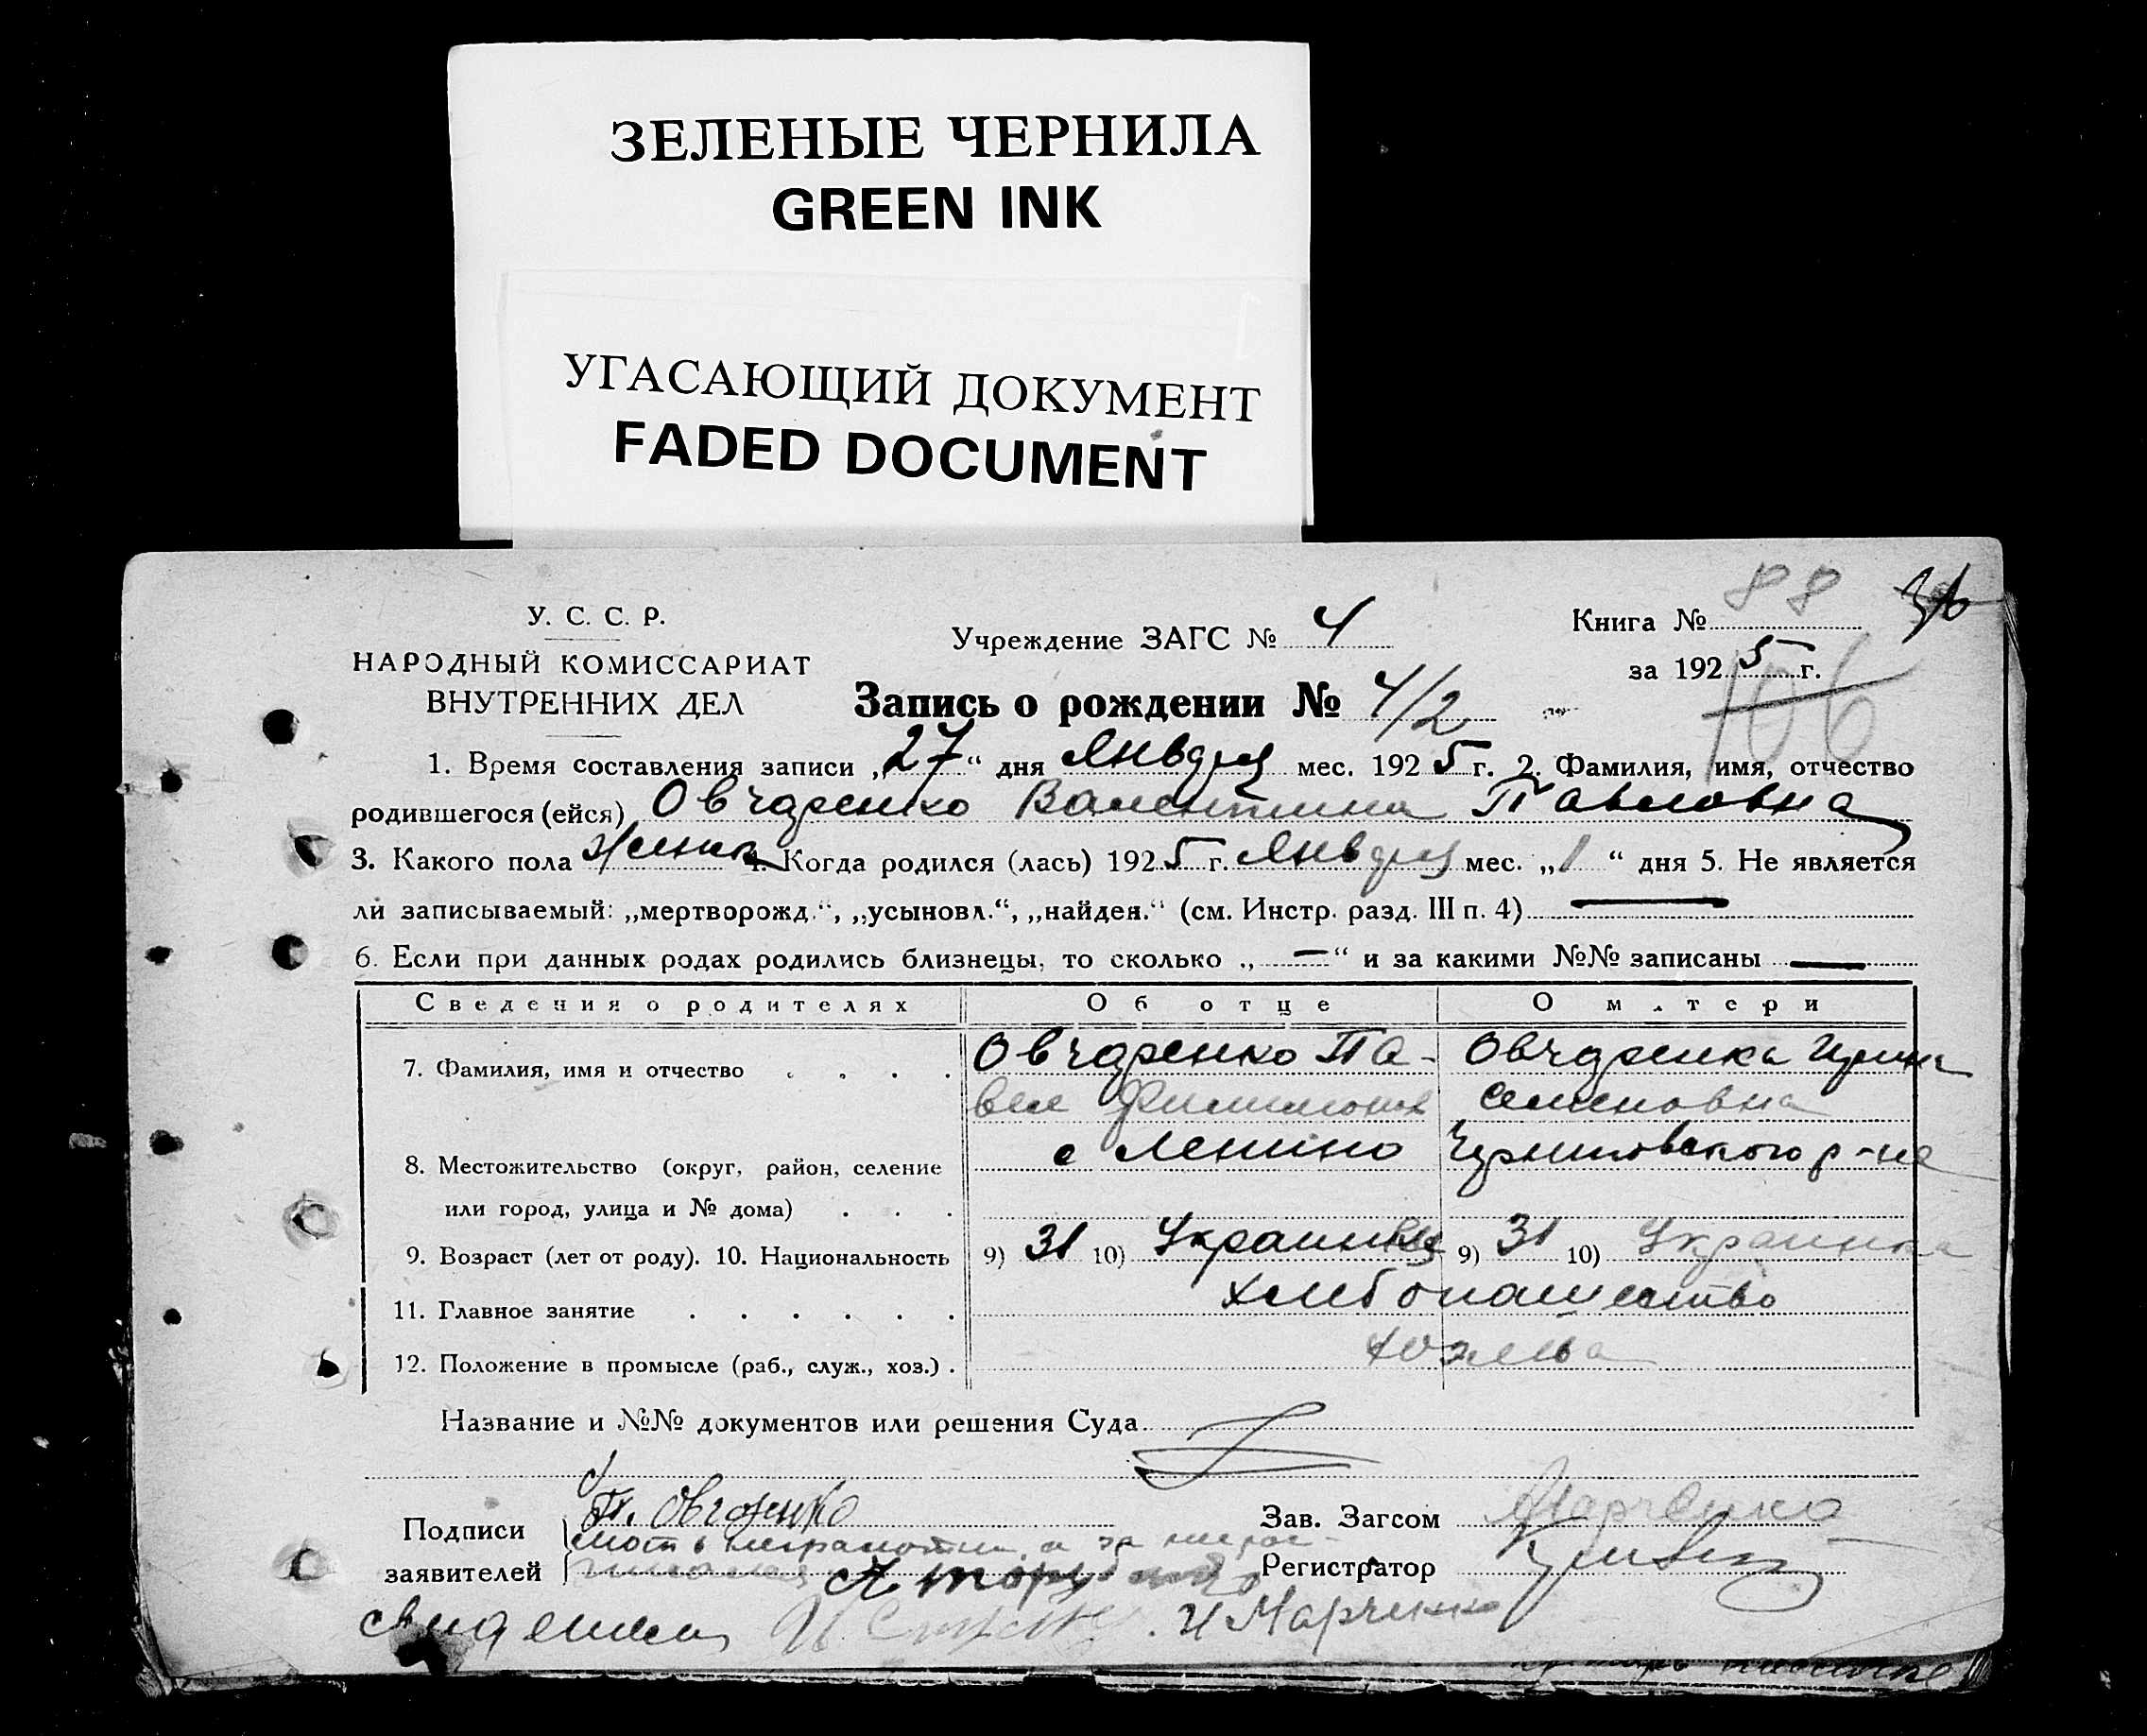 ЗЕЛЕНЫЕ ЧЕРНИЛА
GREEN INK
УГАСАЮЩИЙ ДОКУМЕНТ
FADED DOCUMENT
У. С. С. Р.
НАРОДНЫЙ КОМИССАРИАТ
ВНУТРЕННИХ ДЕЛ
Учреждение ЗАГС № 4
Книга № 88
за 1925 г.
106
Запись о рождении № 4/2
1. Время составления записи „27“ дня Января мес. 1925 г. 2. Фамилия, имя, отчество
родившегося (ейся) Овчаренко Валентина Павловна
3. Какого пола женск 4. Когда родился (лась) 1925 г. Января мес. „1“ дня 5. Не является
ли записываемый: „мертворожд.“, „усыновл.“, „найден.“ (см. Инстр. разд. III п. 4) —
6. Если при данных родах родились близнецы, то сколько „—“ и за какими №№ записаны —
Сведения о родителях Об отце О матери
7. Фамилия, имя и отчество . . . . Овчаренко Па- Овчаренка Ирина
вел Филимонов Семеновна
8. Местожительство (округ, район, селение с Ленино Черниговского р-на
или город, улица и № дома) . . .
9. Возраст (лет от роду). 10. Национальность 9) 31 10) Украинец 9) 31 10) Украинка
11. Главное занятие . . . . . . хлебопашество
12. Положение в промысле (раб., служ., хоз.) . хозяева
Название и №№ документов или решения Суда
Подписи П. Овчаренко Зав. Загсом Марченко
мать неграмотна а за неграс-
заявителей Регистратор
И Марченко